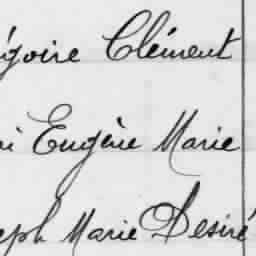 égoire Clément
i Eugène Marie
eph Marie Desiré